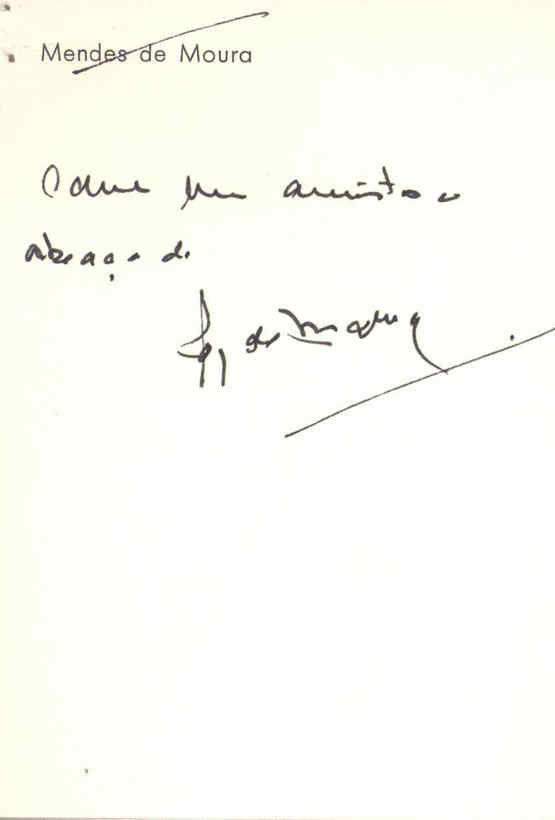 Mendes de Moura
Com um amisto o
abraço de
de Moura